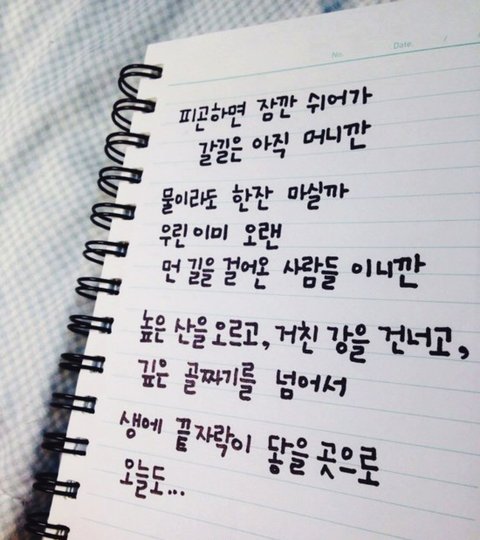 No.
Date. / /
피곤하면 잠깐 쉬어가
갈길은 아직 머니깐
물이라도 한잔 마실까
우린 이미 오랜
먼 길을 걸어온 사람들 이니깐
높은 산을 오르고, 거친 강을 건너고,
깊은 골짜기를 넘어서
생에 끝자락이 닿을 곳으로
오늘도...